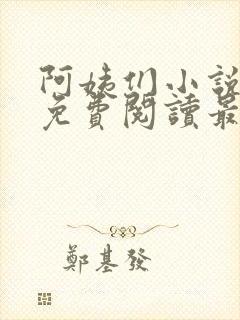 阿姨们小說
免費閱讀最
鄭基發